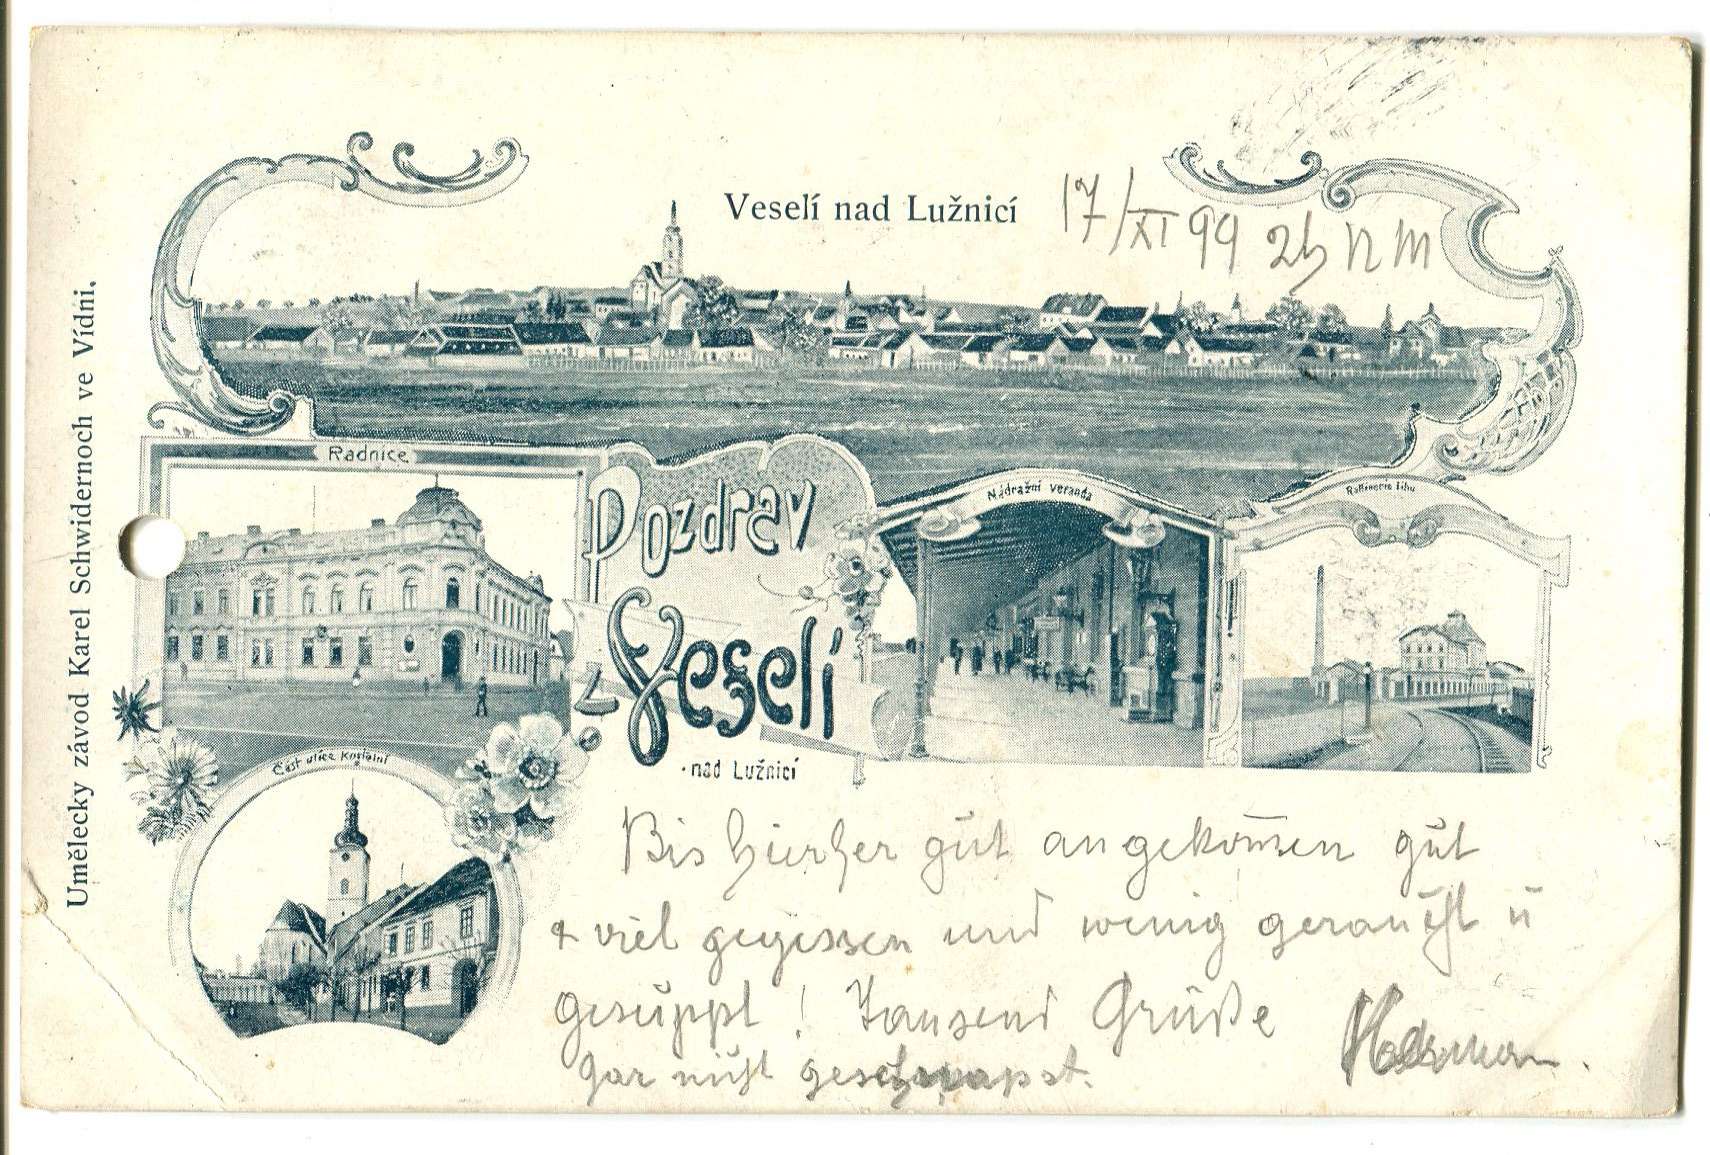 Veselí nad Lužnicí
17/XI 99 2h N M
Umělecky závod Karel Schwidernoch ve Vídni.
Radnice
Pozdrav
z Veselí
nad Lužnicí
Nádražní veranda
Raffinerie lihu
Část ulice Kostelní
Bis hierher gut angekom̅en gut
& viel gegessen und wenig geraucht u
gesuppt! Tausend Grüße
gar nicht geschnapst.